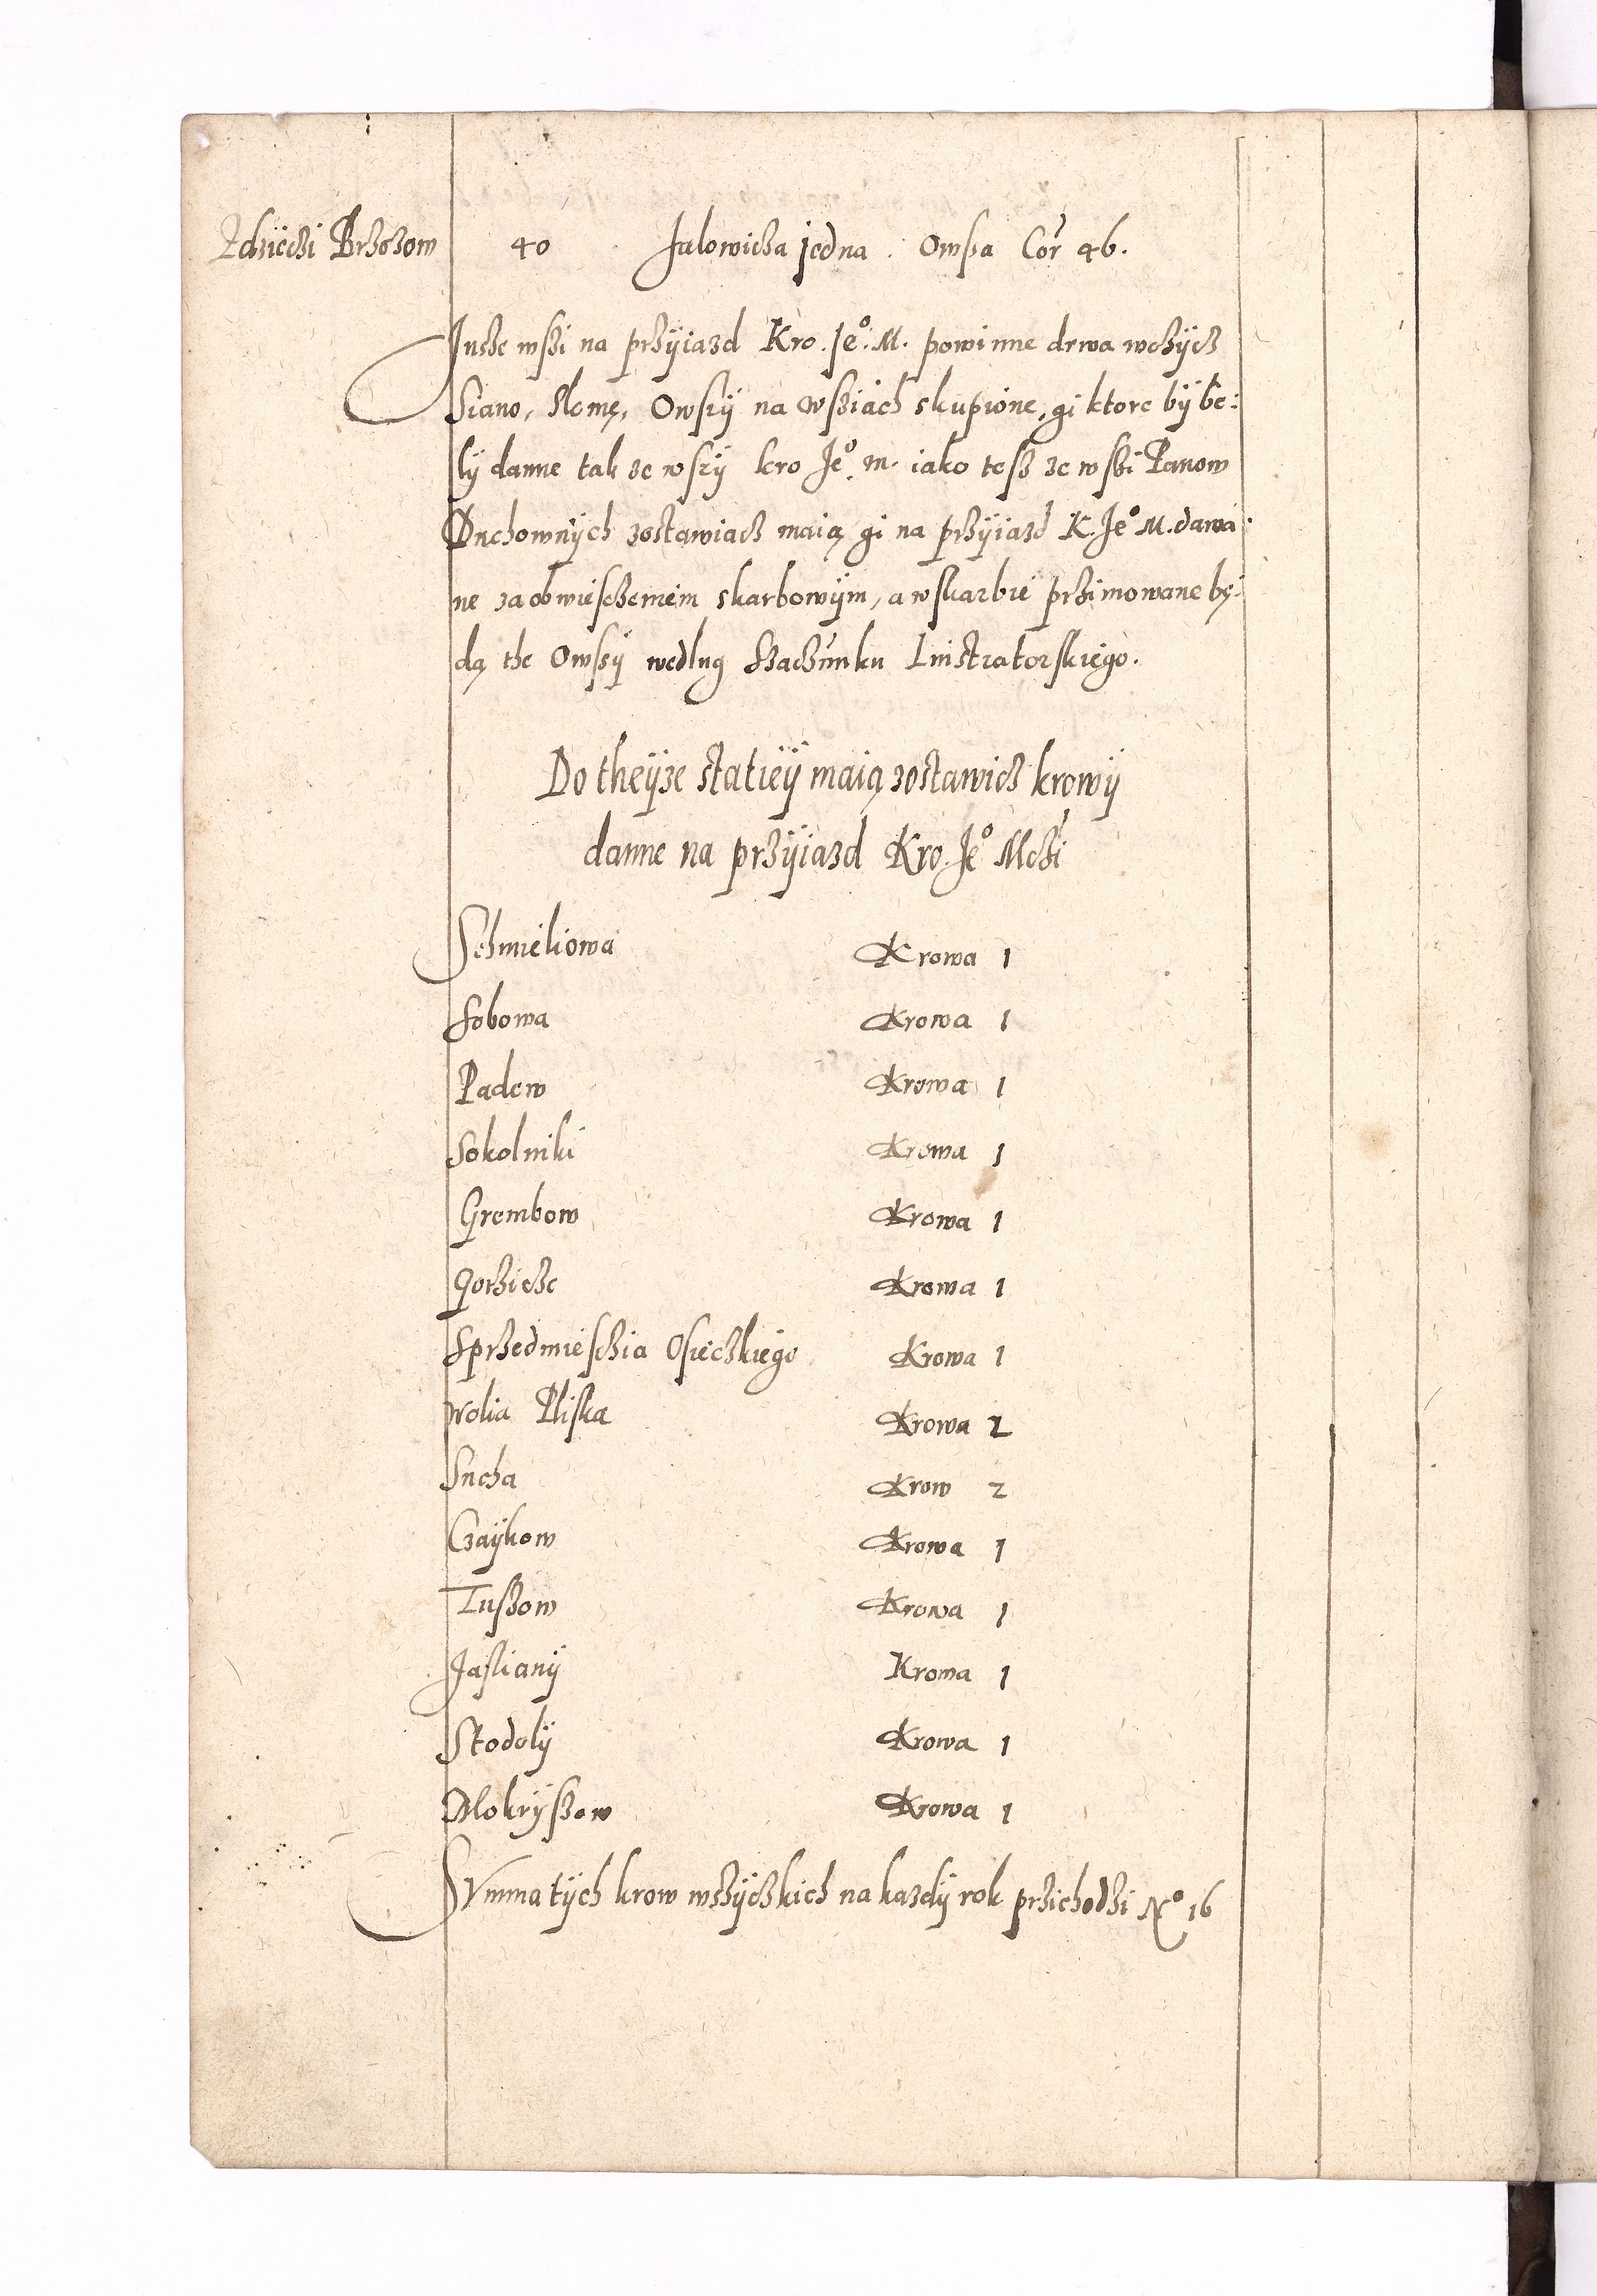 Zdzieczi Brzozow 40 Jalowicza jedna. Owsa Cor 46.
Insze wszi na przÿiazd Kro. Je°. M. powinne drwa wczÿcz
Siano, Slomę, Owszÿ na wsziach skupione, gi ktore bÿ bé:
lÿ danne tak ze wszÿ kro Je°. m. iako tesz ze wszi Panow
Duchownÿch zostawiacz maią gi na przÿiazd K. Je° M. dawa:
ne za obwiesczeniem skarbowÿm, a w skarbie przimowane bę:
dą the Owssÿ wedlug Szaczunku Luistratorskiego.
Do theÿze statieÿ maią zostawicz krowÿ
danne na przÿiazd Kro. Je° Mczi
Schmieliowa Krowa 1
Sobowa Krowa 1
Padew Krowa 1
Sokolniki Krowa 1
Grembow Krowa 1
Gorzicze Krowa 1
Sprzedmiesczia Osieczkiego Krowa 1
Wolia Pliska Krowa 2
Sucha Krow 2
Czaÿkow Krowa 1
Tuszow Krowa 1
Jaslianÿ Krowa 1
Stodolÿ Krowa 1
Mokrÿszow Krowa 1
SVmma tÿch krow wszÿczkich na kazdÿ rok przichodzi N° 16